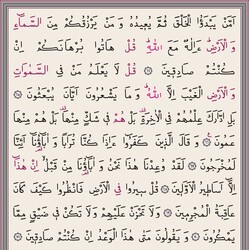 أَمَّن يَبْدَؤُا۟ ٱلْخَلْقَ ثُمَّ يُعِيدُهُۥ وَمَن يَرْزُقُكُم مِّنَ ٱلسَّمَآءِ
وَٱلْأَرْضِ أَءِلَٰهٌ مَّعَ ٱللَّهِ قُلْ هَاتُوا۟ بُرْهَٰنَكُمْ إِن
كُنتُمْ صَٰدِقِينَ ۝ قُل لَّا يَعْلَمُ مَن فِى ٱلسَّمَٰوَٰتِ
وَٱلْأَرْضِ ٱلْغَيْبَ إِلَّا ٱللَّهُ وَمَا يَشْعُرُونَ أَيَّانَ يُبْعَثُونَ ۝
بَلِ ٱدَّٰرَكَ عِلْمُهُمْ فِى ٱلْءَاخِرَةِ بَلْ هُمْ فِى شَكٍّ مِّنْهَا بَلْ هُم مِّنْهَا
عَمُونَ ۝ وَقَالَ ٱلَّذِينَ كَفَرُوٓا۟ أَءِذَا كُنَّا تُرَٰبًا وَءَابَآؤُنَآ أَئِنَّا
لَمُخْرَجُونَ ۝ لَقَدْ وُعِدْنَا هَٰذَا نَحْنُ وَءَابَآؤُنَا مِن قَبْلُ إِنْ هَٰذَآ
إِلَّآ أَسَٰطِيرُ ٱلْأَوَّلِينَ ۝ قُلْ سِيرُوا۟ فِى ٱلْأَرْضِ فَٱنظُرُوا۟ كَيْفَ كَانَ
عَٰقِبَةُ ٱلْمُجْرِمِينَ ۝ وَلَا تَحْزَنْ عَلَيْهِمْ وَلَا تَكُن فِى ضَيْقٍ مِّمَّا
يَمْكُرُونَ ۝ وَيَقُولُونَ مَتَىٰ هَٰذَا ٱلْوَعْدُ إِن كُنتُمْ صَٰدِقِينَ